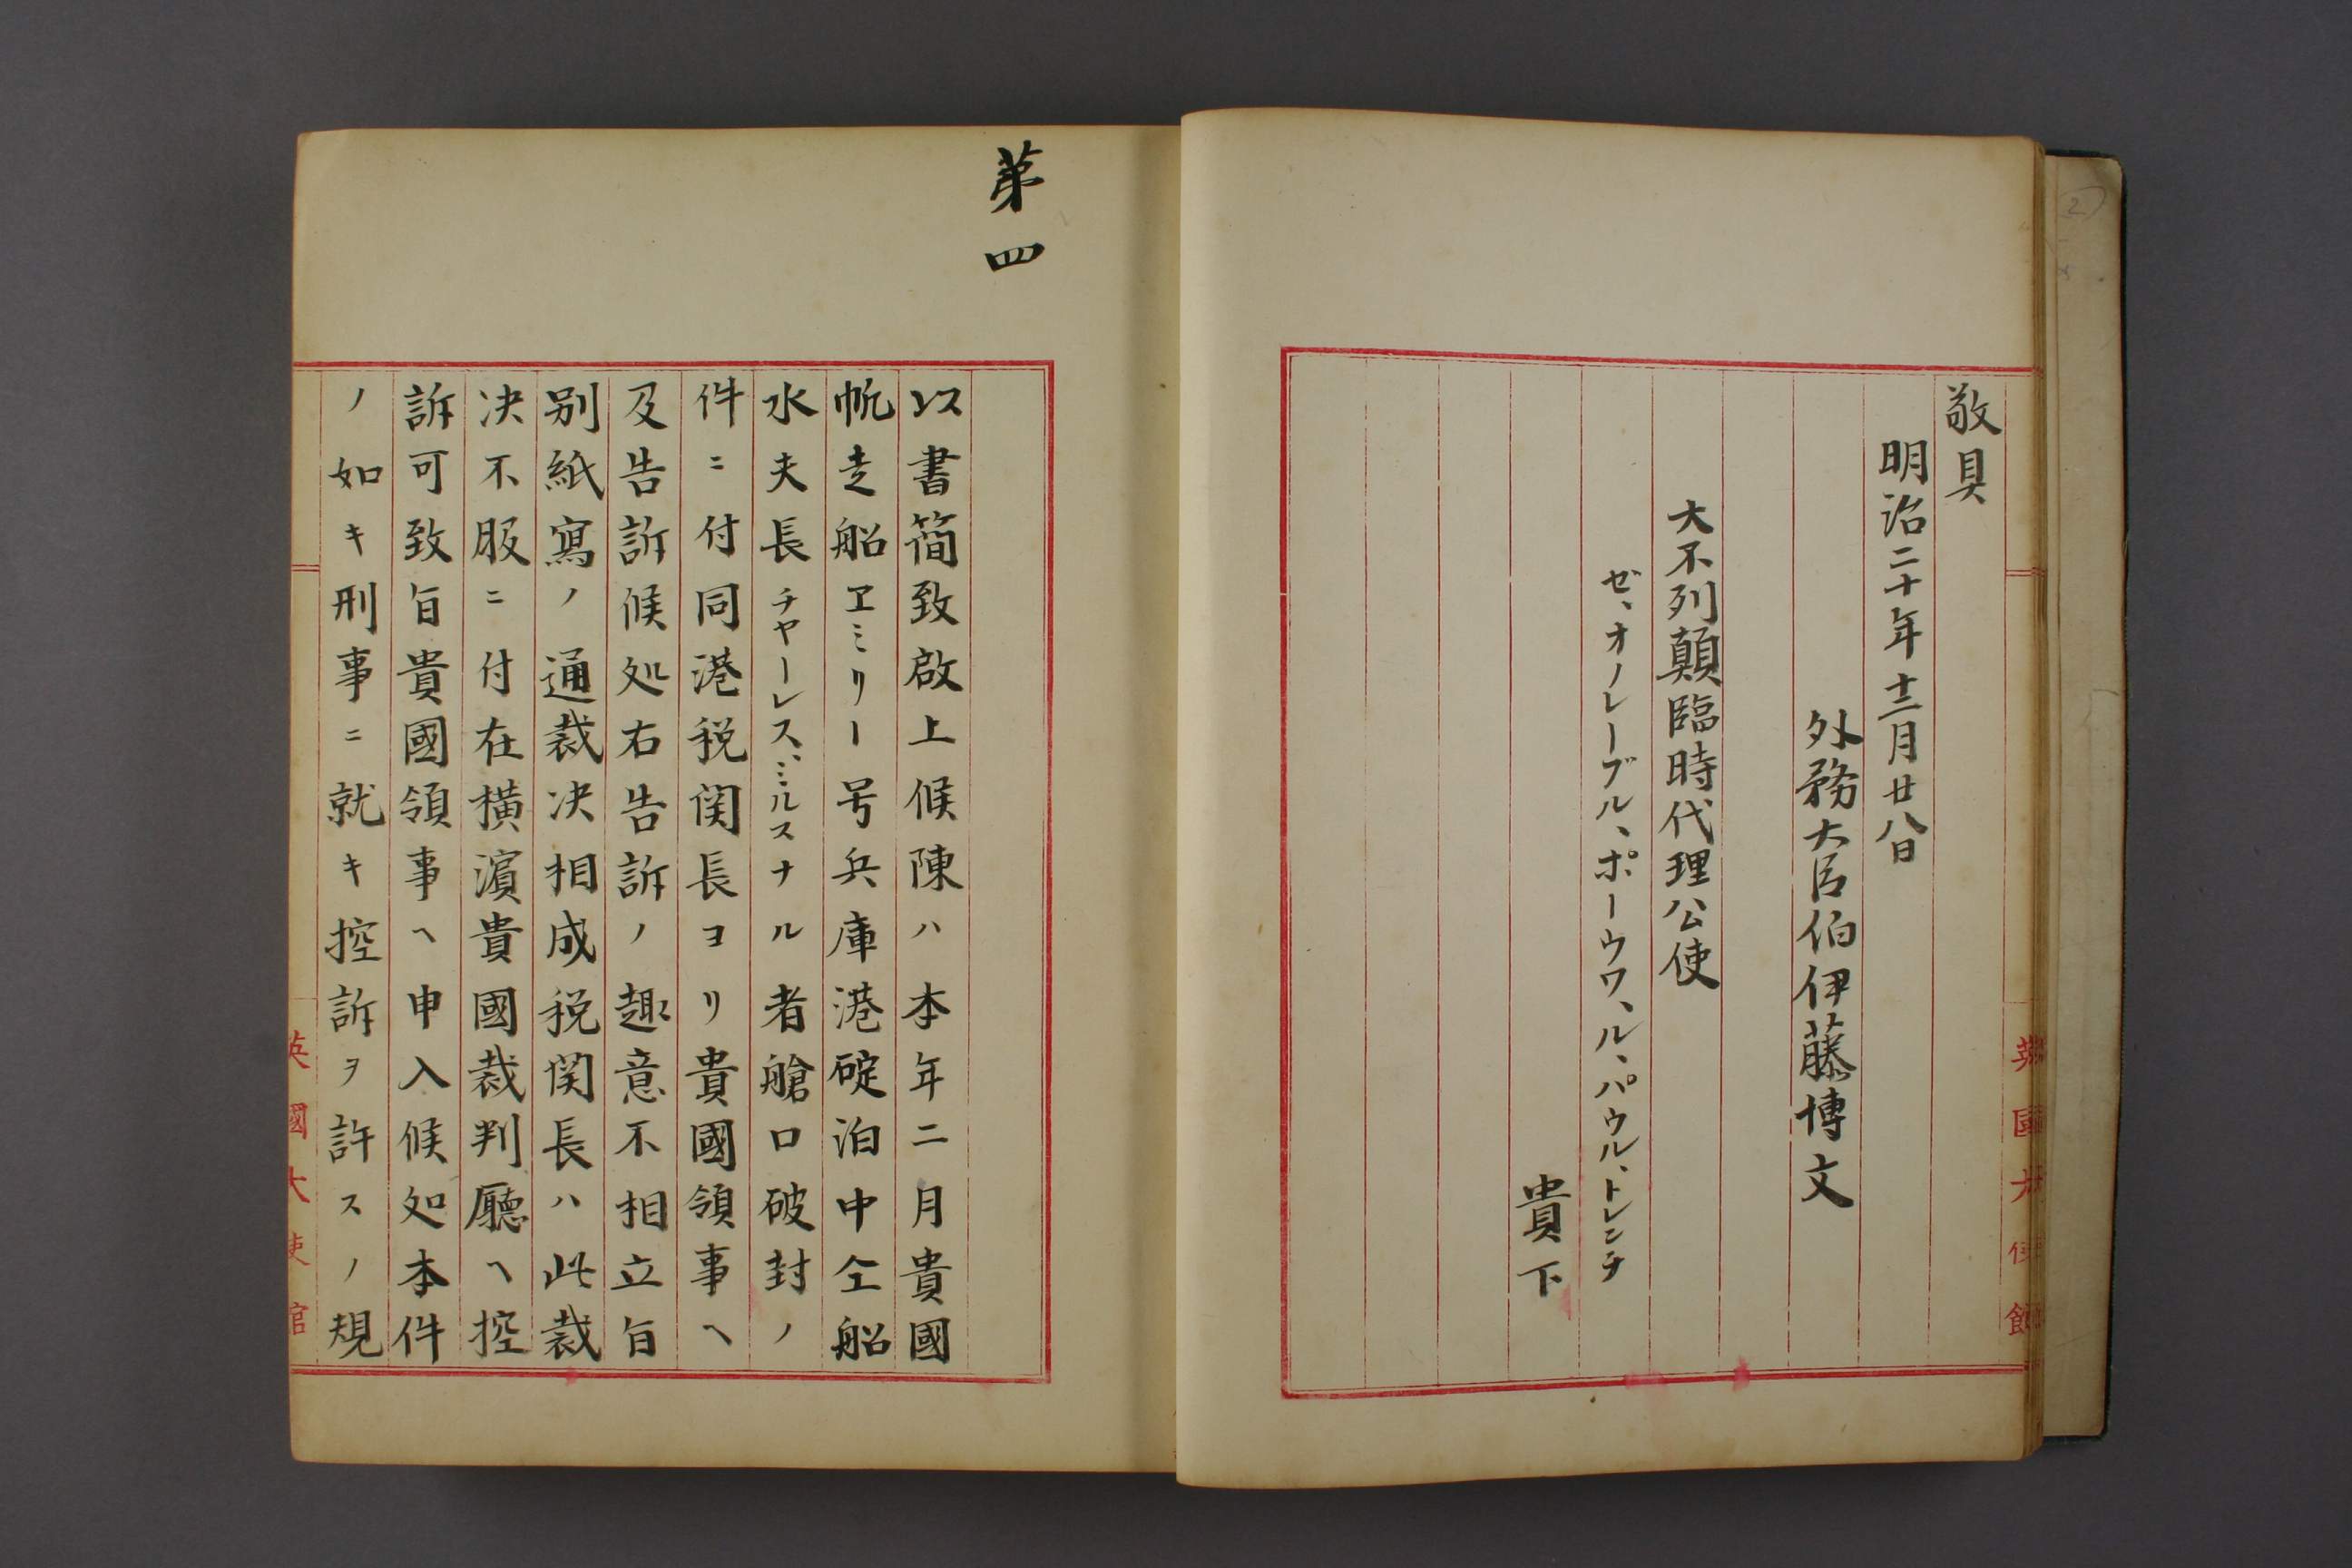 敬具
明治二十年十二月廿八日
外務大臣伯伊藤博文
大不列顛臨時代理公使
ゼ、オノレーブル、ポーウワ、ル、パウル、トレンチ
貴下
英國大使館
第四
以書簡致啟上候陳ハ本年二月貴國
帆走船ヱミリー号兵庫港碇泊中仝船
水夫長チヤーレス、ミルスナル者艙口破封ノ
件ニ付同港税関長ヨリ貴國領事ヘ
及告訴候処右告訴ノ趣意不相立旨
別紙寫ノ通裁決相成税関長ハ此裁
决不服ニ付在横濵貴國裁判廳ヘ控
訴可致旨貴國領事ヘ申入候処本件
ノ如キ刑事ニ就キ控訴ヲ許スノ規
英國大使館